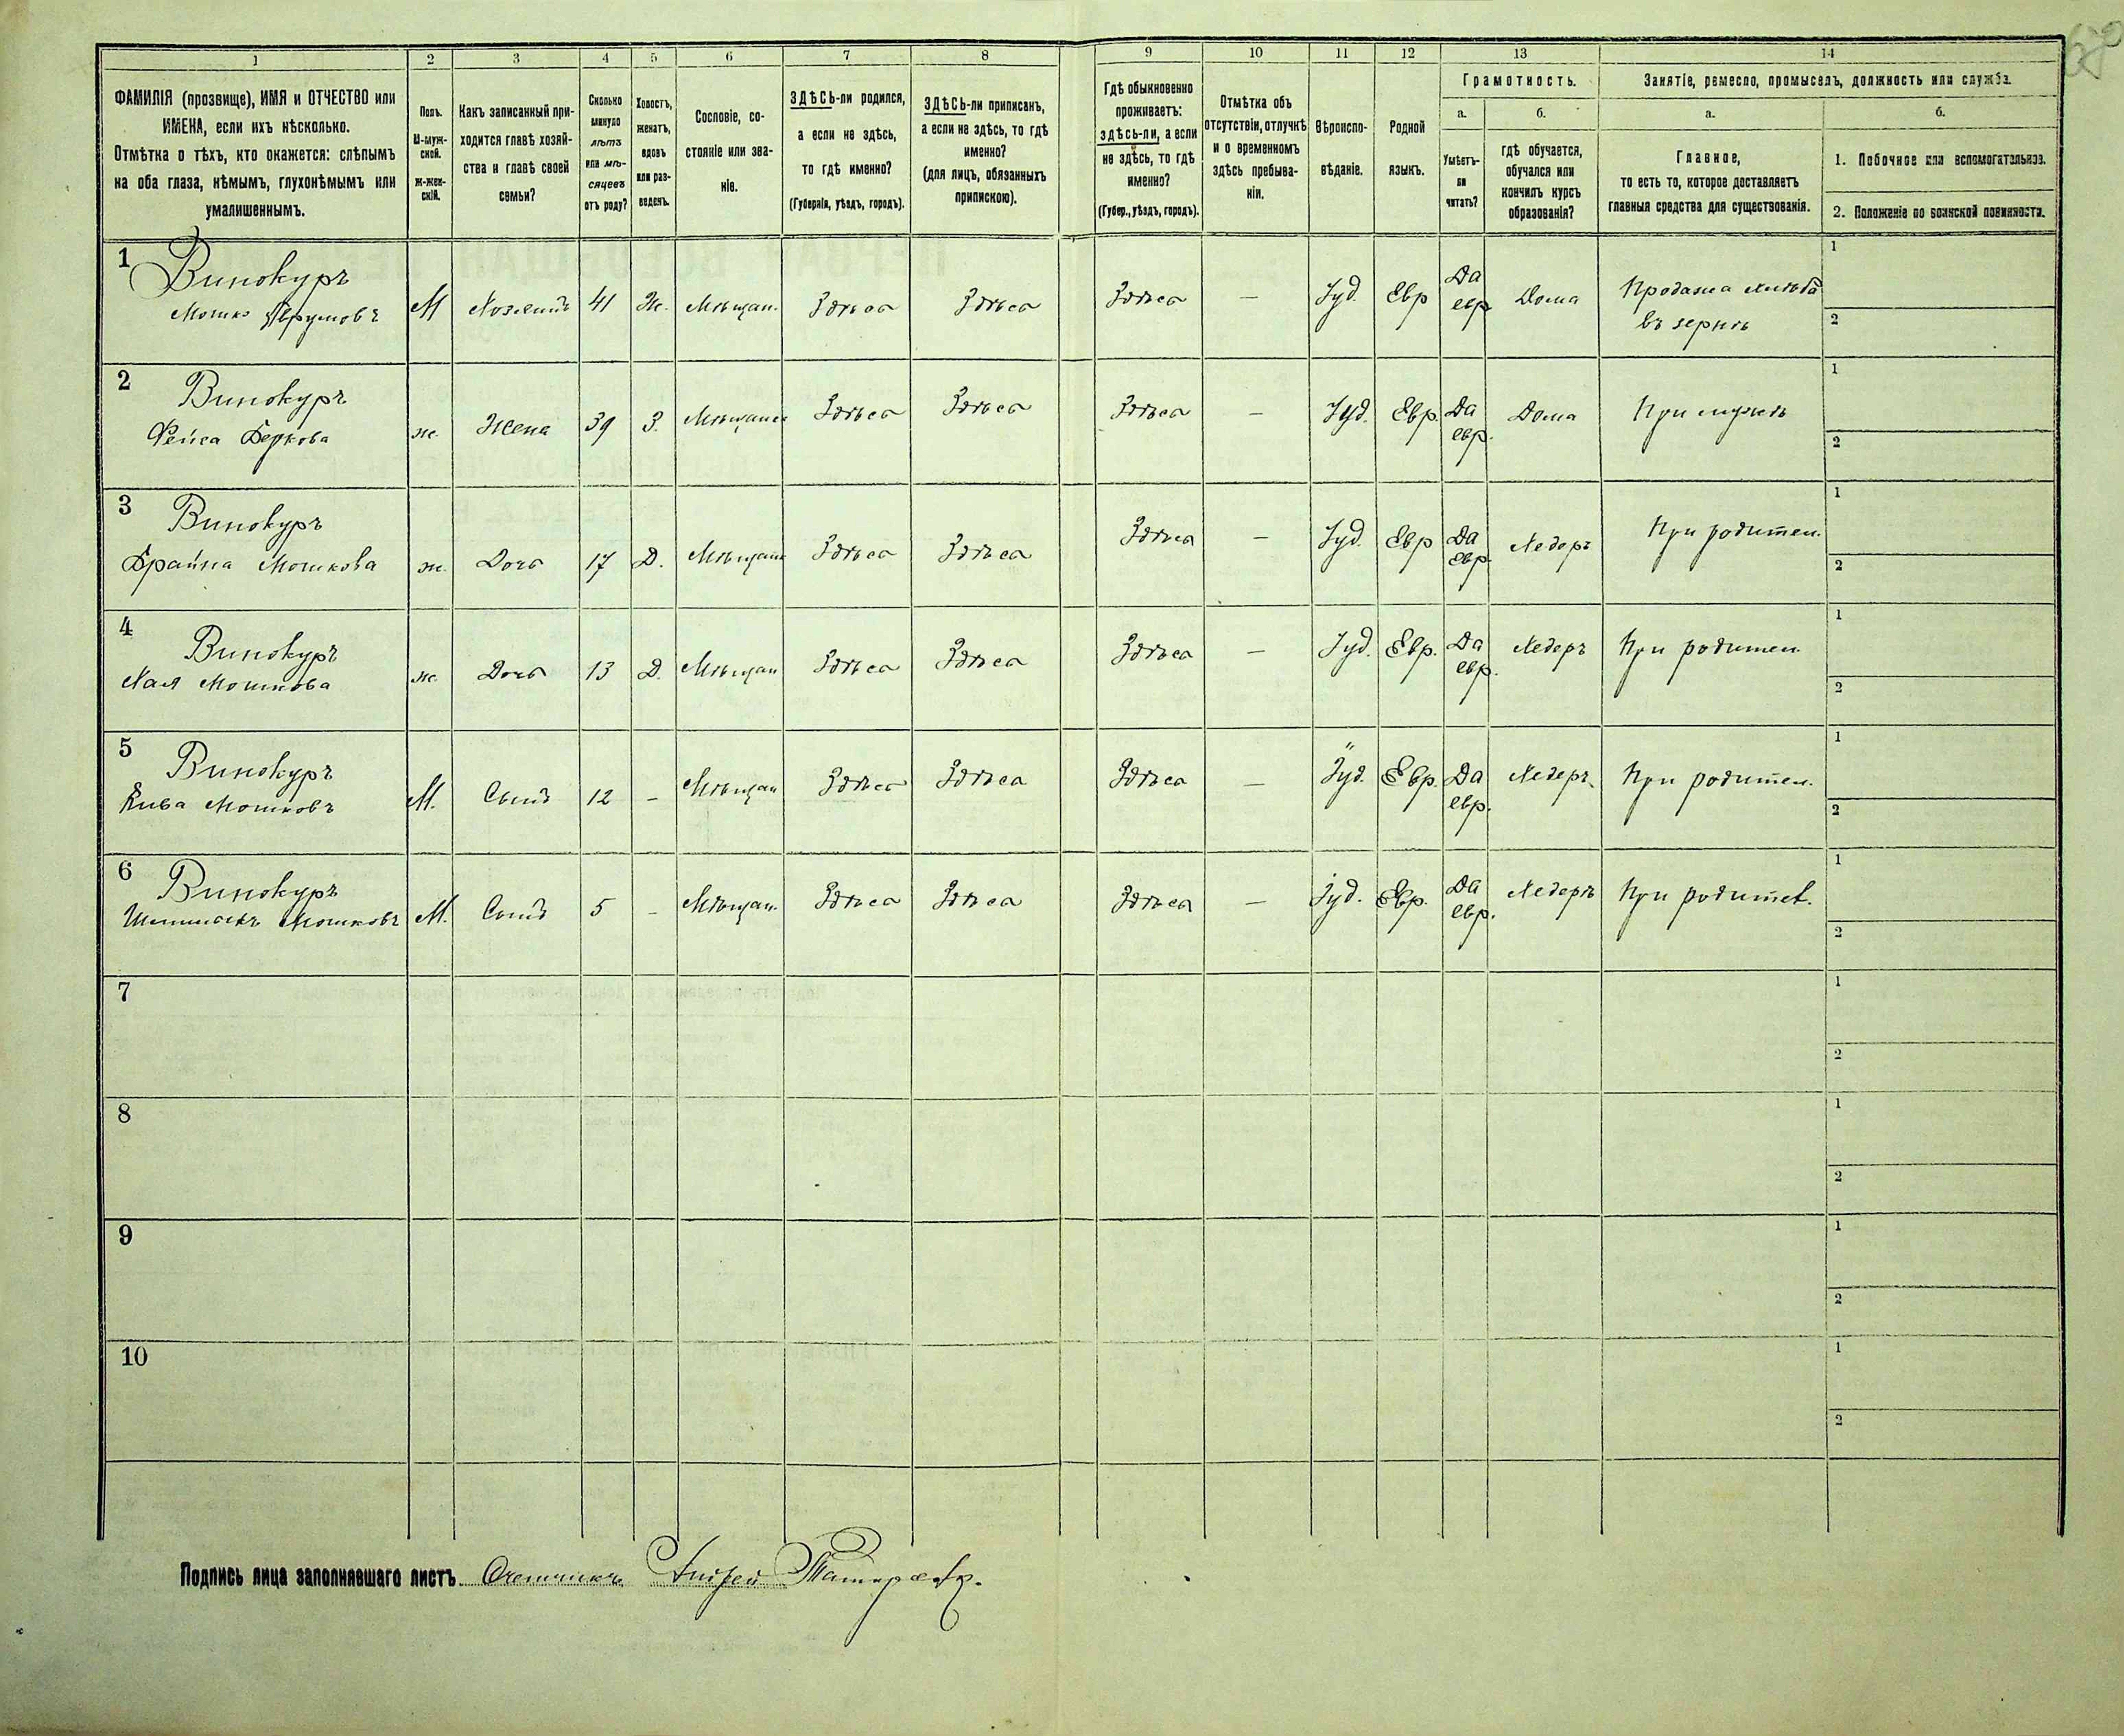 1 2 3 4 5 6 7 8 9 10 11 12 13 14
ФАМИЛІЯ (прозвище), ИМЯ и ОТЧЕСТВО или
ИМЕНА, если ихъ нѣсколько.
Отмѣтка о тѣхъ, кто окажется: слѣпымъ
на оба глаза, нѣмымъ, глухонѣмымъ или
умалишеннымъ.
Полъ.
М-муж-
ской.
ж-жен-
скій.
Какъ записанный при-
ходится главѣ хозяй-
ства и главѣ своей
семьи?
Сколько
минуло
лѣтъ
или мѣ-
сяцевъ
отъ роду?
Холостъ,
женатъ,
вдовъ
или раз-
веденъ.
Сословіе, со-
стояніе или зва-
ніе.
ЗДѢСЬ-ли родился,
а если не здѣсь,
то гдѣ именно?
(Губернія, уѣздъ, городъ).
ЗДѢСЬ-ли приписанъ,
а если не здѣсь, то гдѣ
именно?
(для лицъ, обязанныхъ
припискою).
Гдѣ обыкновенно
проживаетъ:
здѣсь-ли, а если
не здѣсь, то гдѣ
именно?
(Губер., уѣздъ, городъ).
Отмѣтка объ
отсутствіи, отлучкѣ
и о временномъ
здѣсь пребыва-
ніи.
Вѣроиспо-
вѣданіе.
Родной
языкъ.
Грамотность.
а.
Умѣетъ-
ли
читать?
б.
гдѣ обучается,
обучался или
кончилъ курсъ
образованія?
Занятіе, ремесло, промыселъ, должность или служба.
а.
Главное,
то есть то, которое доставляетъ
главныя средства для существованія.
б.
1. Побочное или вспомогательное.
2. Положеніе по воинской повинности.
1 Винокуръ
Мошко Аврумовъ М Хозяинъ 41 Ж. Мѣщан. Здѣсь Здѣсь Здѣсь — Іуд. Евр Да евр Дома Продажа хлѣба
въ зернѣ
1
2
2 Винокуръ
Рейса Беркова ж. Жена 39 З. Мѣщанс Здѣсь Здѣсь Здѣсь — Іуд. Евр. Да евр. Дома При мужѣ
1
2
3 Винокуръ
Брайна Мошкова ж. Дочь 17 Д. Мѣщанс Здѣсь Здѣсь Здѣсь — Іуд. Евр Да евр. Хедеръ При родител.
1
2
4 Винокуръ
Хая Мошкова ж. Дочь 13 Д. Мѣщан Здѣсь Здѣсь Здѣсь — Іуд. Евр. Да евр. Хедеръ При родител
1
2
5 Винокуръ
Кива Мошковъ М. Сынъ 12 — Мѣщан Здѣсь Здѣсь Здѣсь — Іуд. Евр. Да евр. Хедеръ При родител.
1
2
6 Винокуръ
Мошковъ М. Сынъ 5 — Мѣщан. Здѣсь Здѣсь Здѣсь — Іуд. Евр. Да евр. Хедеръ При родител.
1
2
7
1
2
8
1
2
9
1
2
10
1
2
Подпись лица заполнявшаго листъ. Счетчикъ